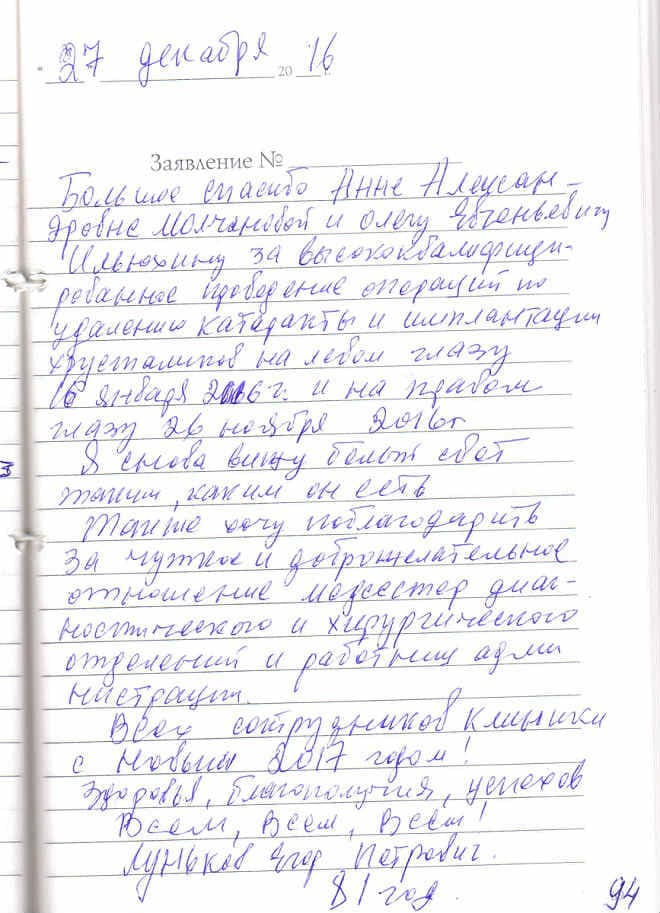 27 декабря 2016 г.
Заявление №
Большое спасибо Анне Алексан-
дровне Молчановой и Олегу Евгеньевичу
Ильюхину за высококвалифици-
рованное проведение операций по
удалению катаракты и имплантации
хрусталиков на левом глазу
16 января 2016 г. и на правом
глазу 26 ноября 2016г
Я снова вижу белый свет
таким, каким он есть
Также хочу поблагодарить
за чуткое и доброжелательное
отношение медсестер диаг-
ностического и хирургического
отделений и работниц адми
нистрации.
Всех сотрудников клиники
с Новым 2017 годом!
Здоровья, благополучия, успехов
Всем, Всем, Всем!
Луньков Егор Петрович.
81 год
94
3